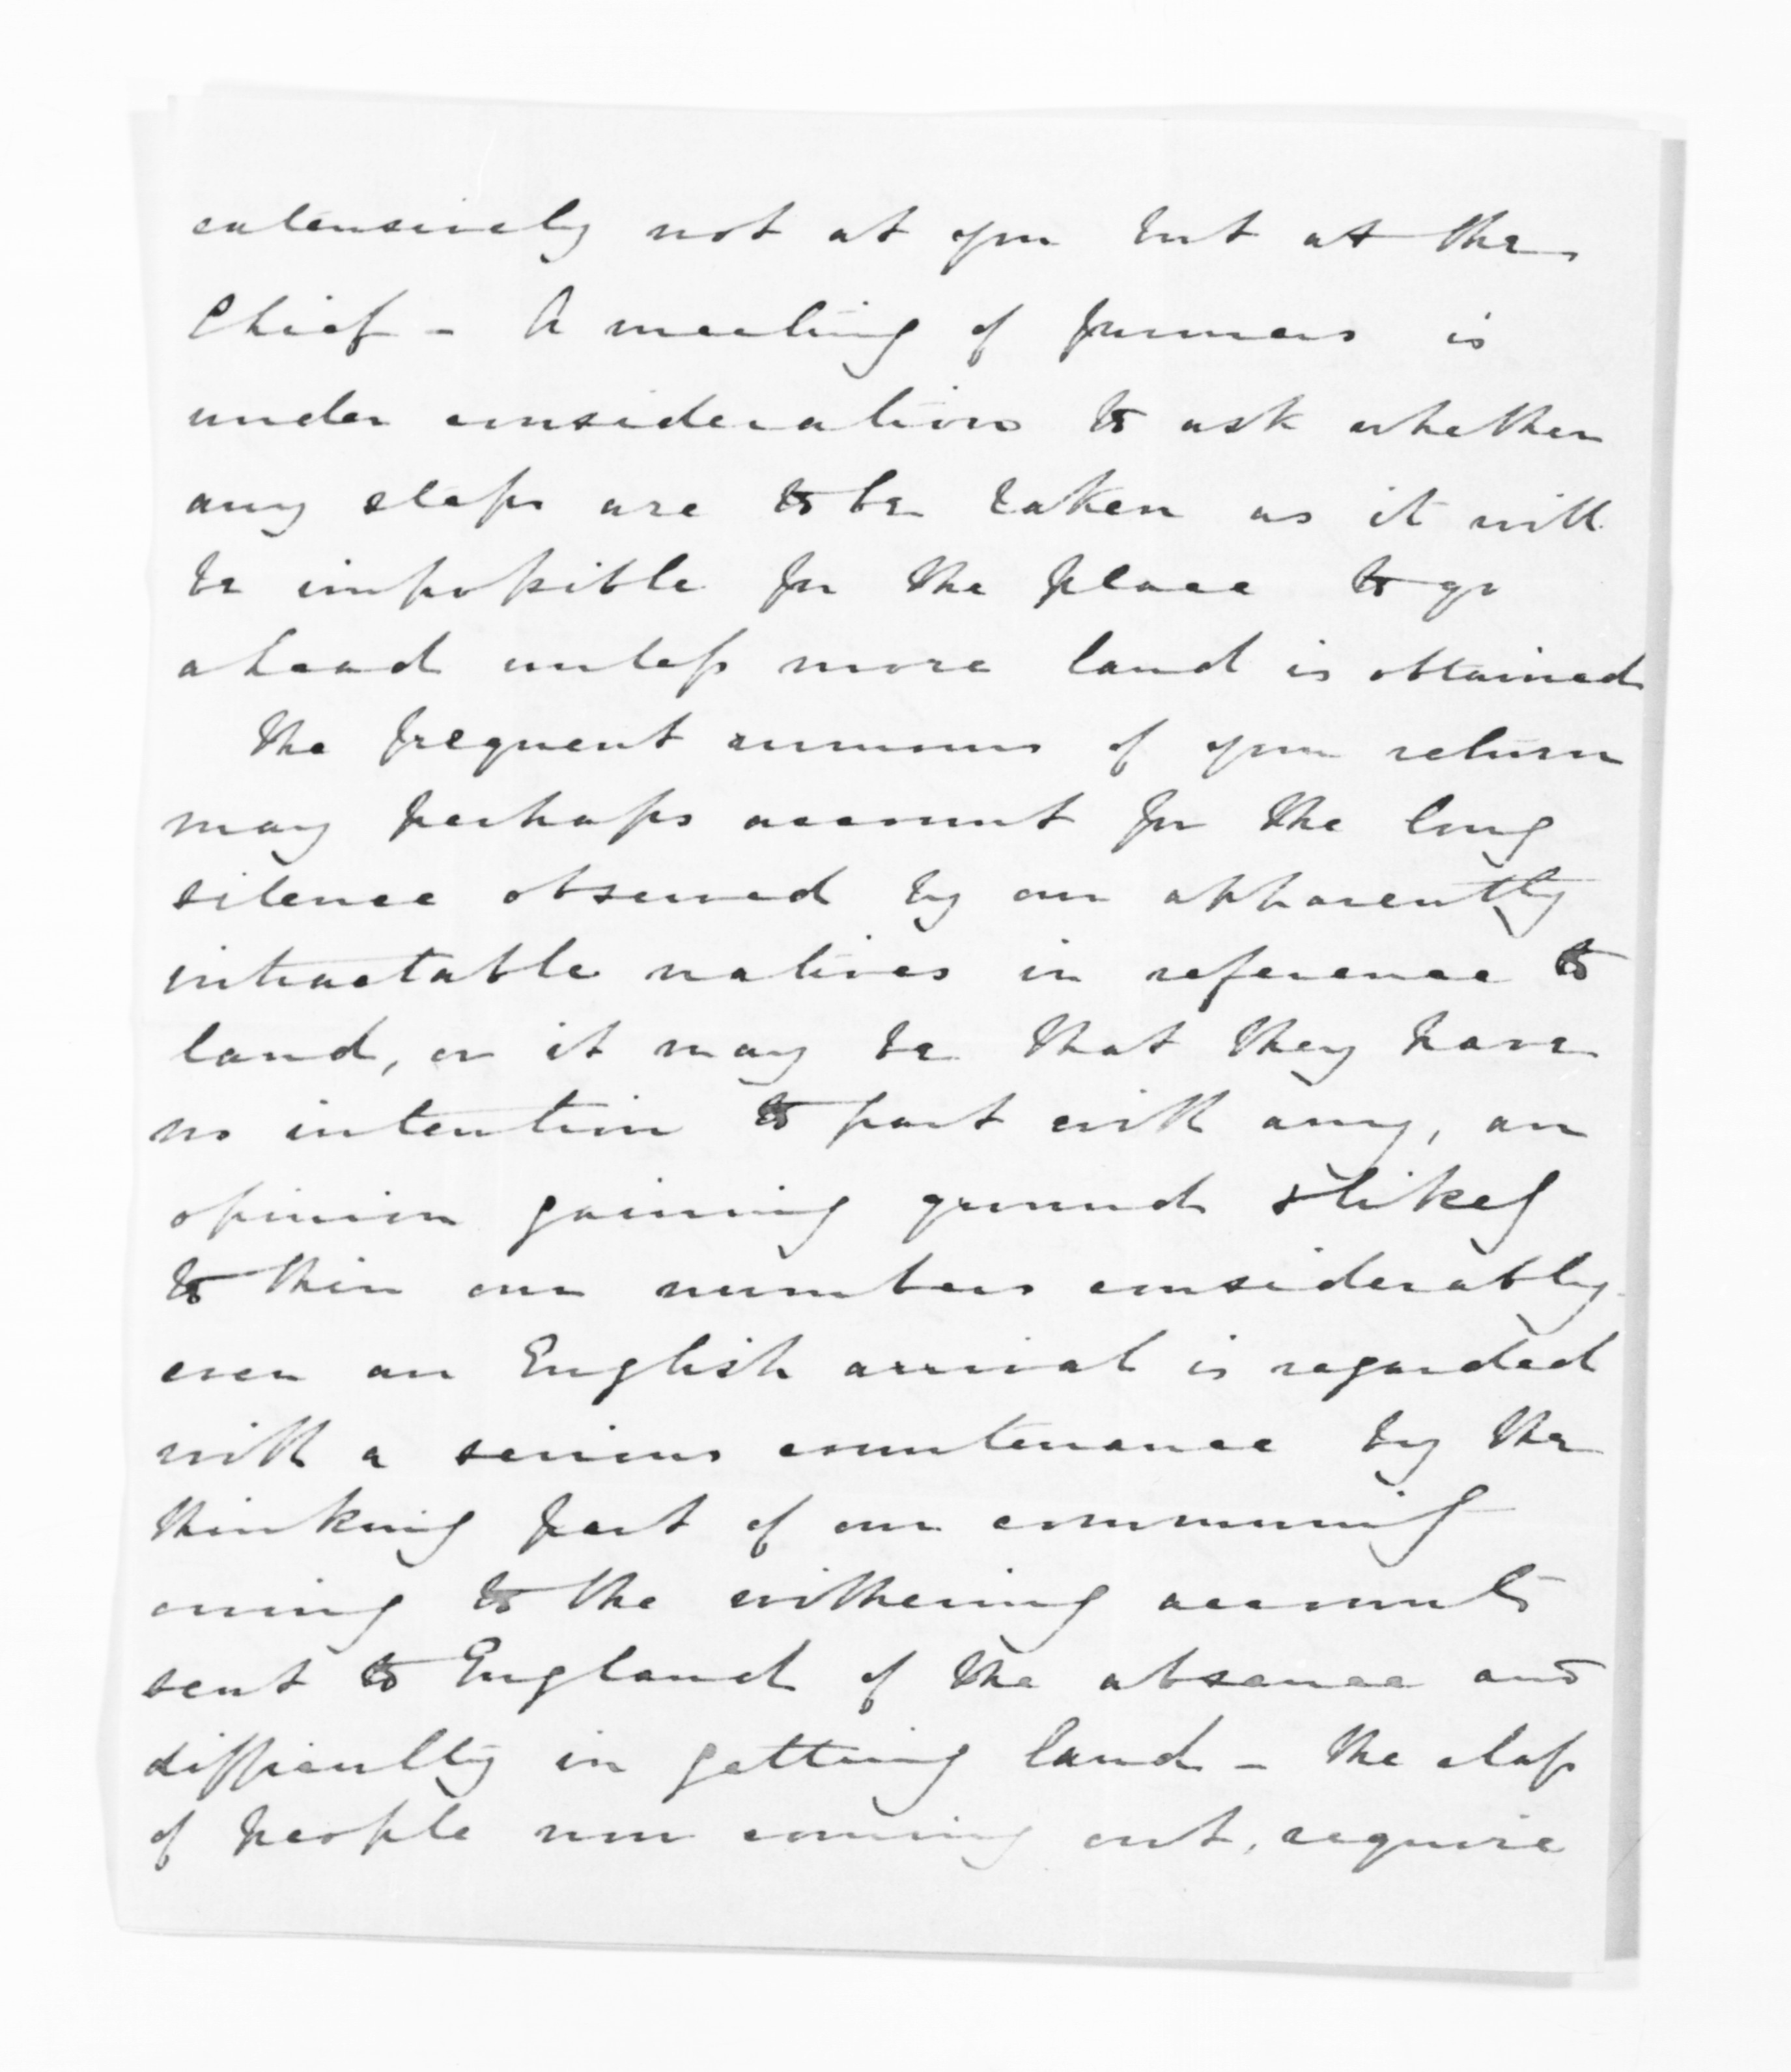 extensively not at you but at the
Chief - A meeting of farmers is
under consideration to ask whether
any steps are to be taken as it will
be impossible for the place to go
ahead unless more land is obtained
The frequent rumours of your return
may perhaps account for the long
silence observed by our apparently
intractable natives in reference to
land, or it may be that they have
no intention to part with any, an
opinion gaining ground & likely
to thin our numbers considerably
even an English arrival is regarded
with a serious countenance by the
thinking part of our community
owing to the withering accounts
sent to England of the absence and
difficulty in getting land - The class
of people now coming out, require